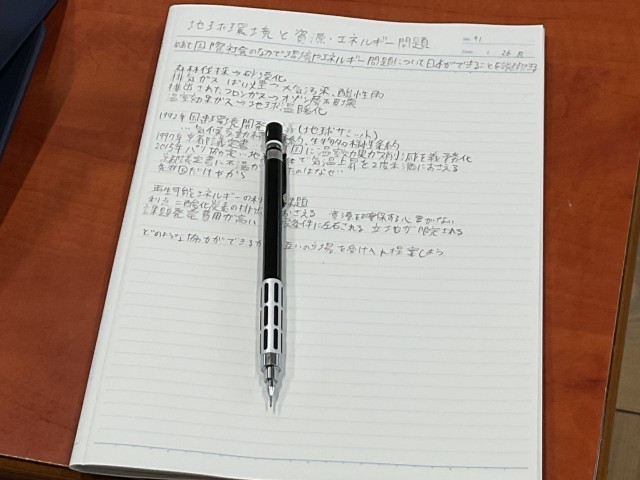 地球環境と資源・エネルギー問題
No. 91
Date
めあて 国際社会のなかで環境やエネルギー問題について日本ができることを
森林伐採→砂漠化
排気ガス ばい煙→大気汚染、酸性雨
排出されたフロンガス→オゾン層の破壊
温室効果ガス→地球温暖化
1992年 国連環境開発 (地球サミット)
…気候変動 、生物多様性条約
1997年 京都議定書 国に温室効果ガス削減を義務化
2015年 パリ協定…地 て気温上昇を2度未満におさえる
京都議定書に不 のはなぜ…
先進国だけだから
再生可能エネルギーの利 課題
利点 二酸化炭素の排出 おさえる 資源を確保する心配がない
課題 発電費用が高い 条件に左右される 立地が限定される
どのような協力ができるか 互いの立場を受け入れ提案しよう